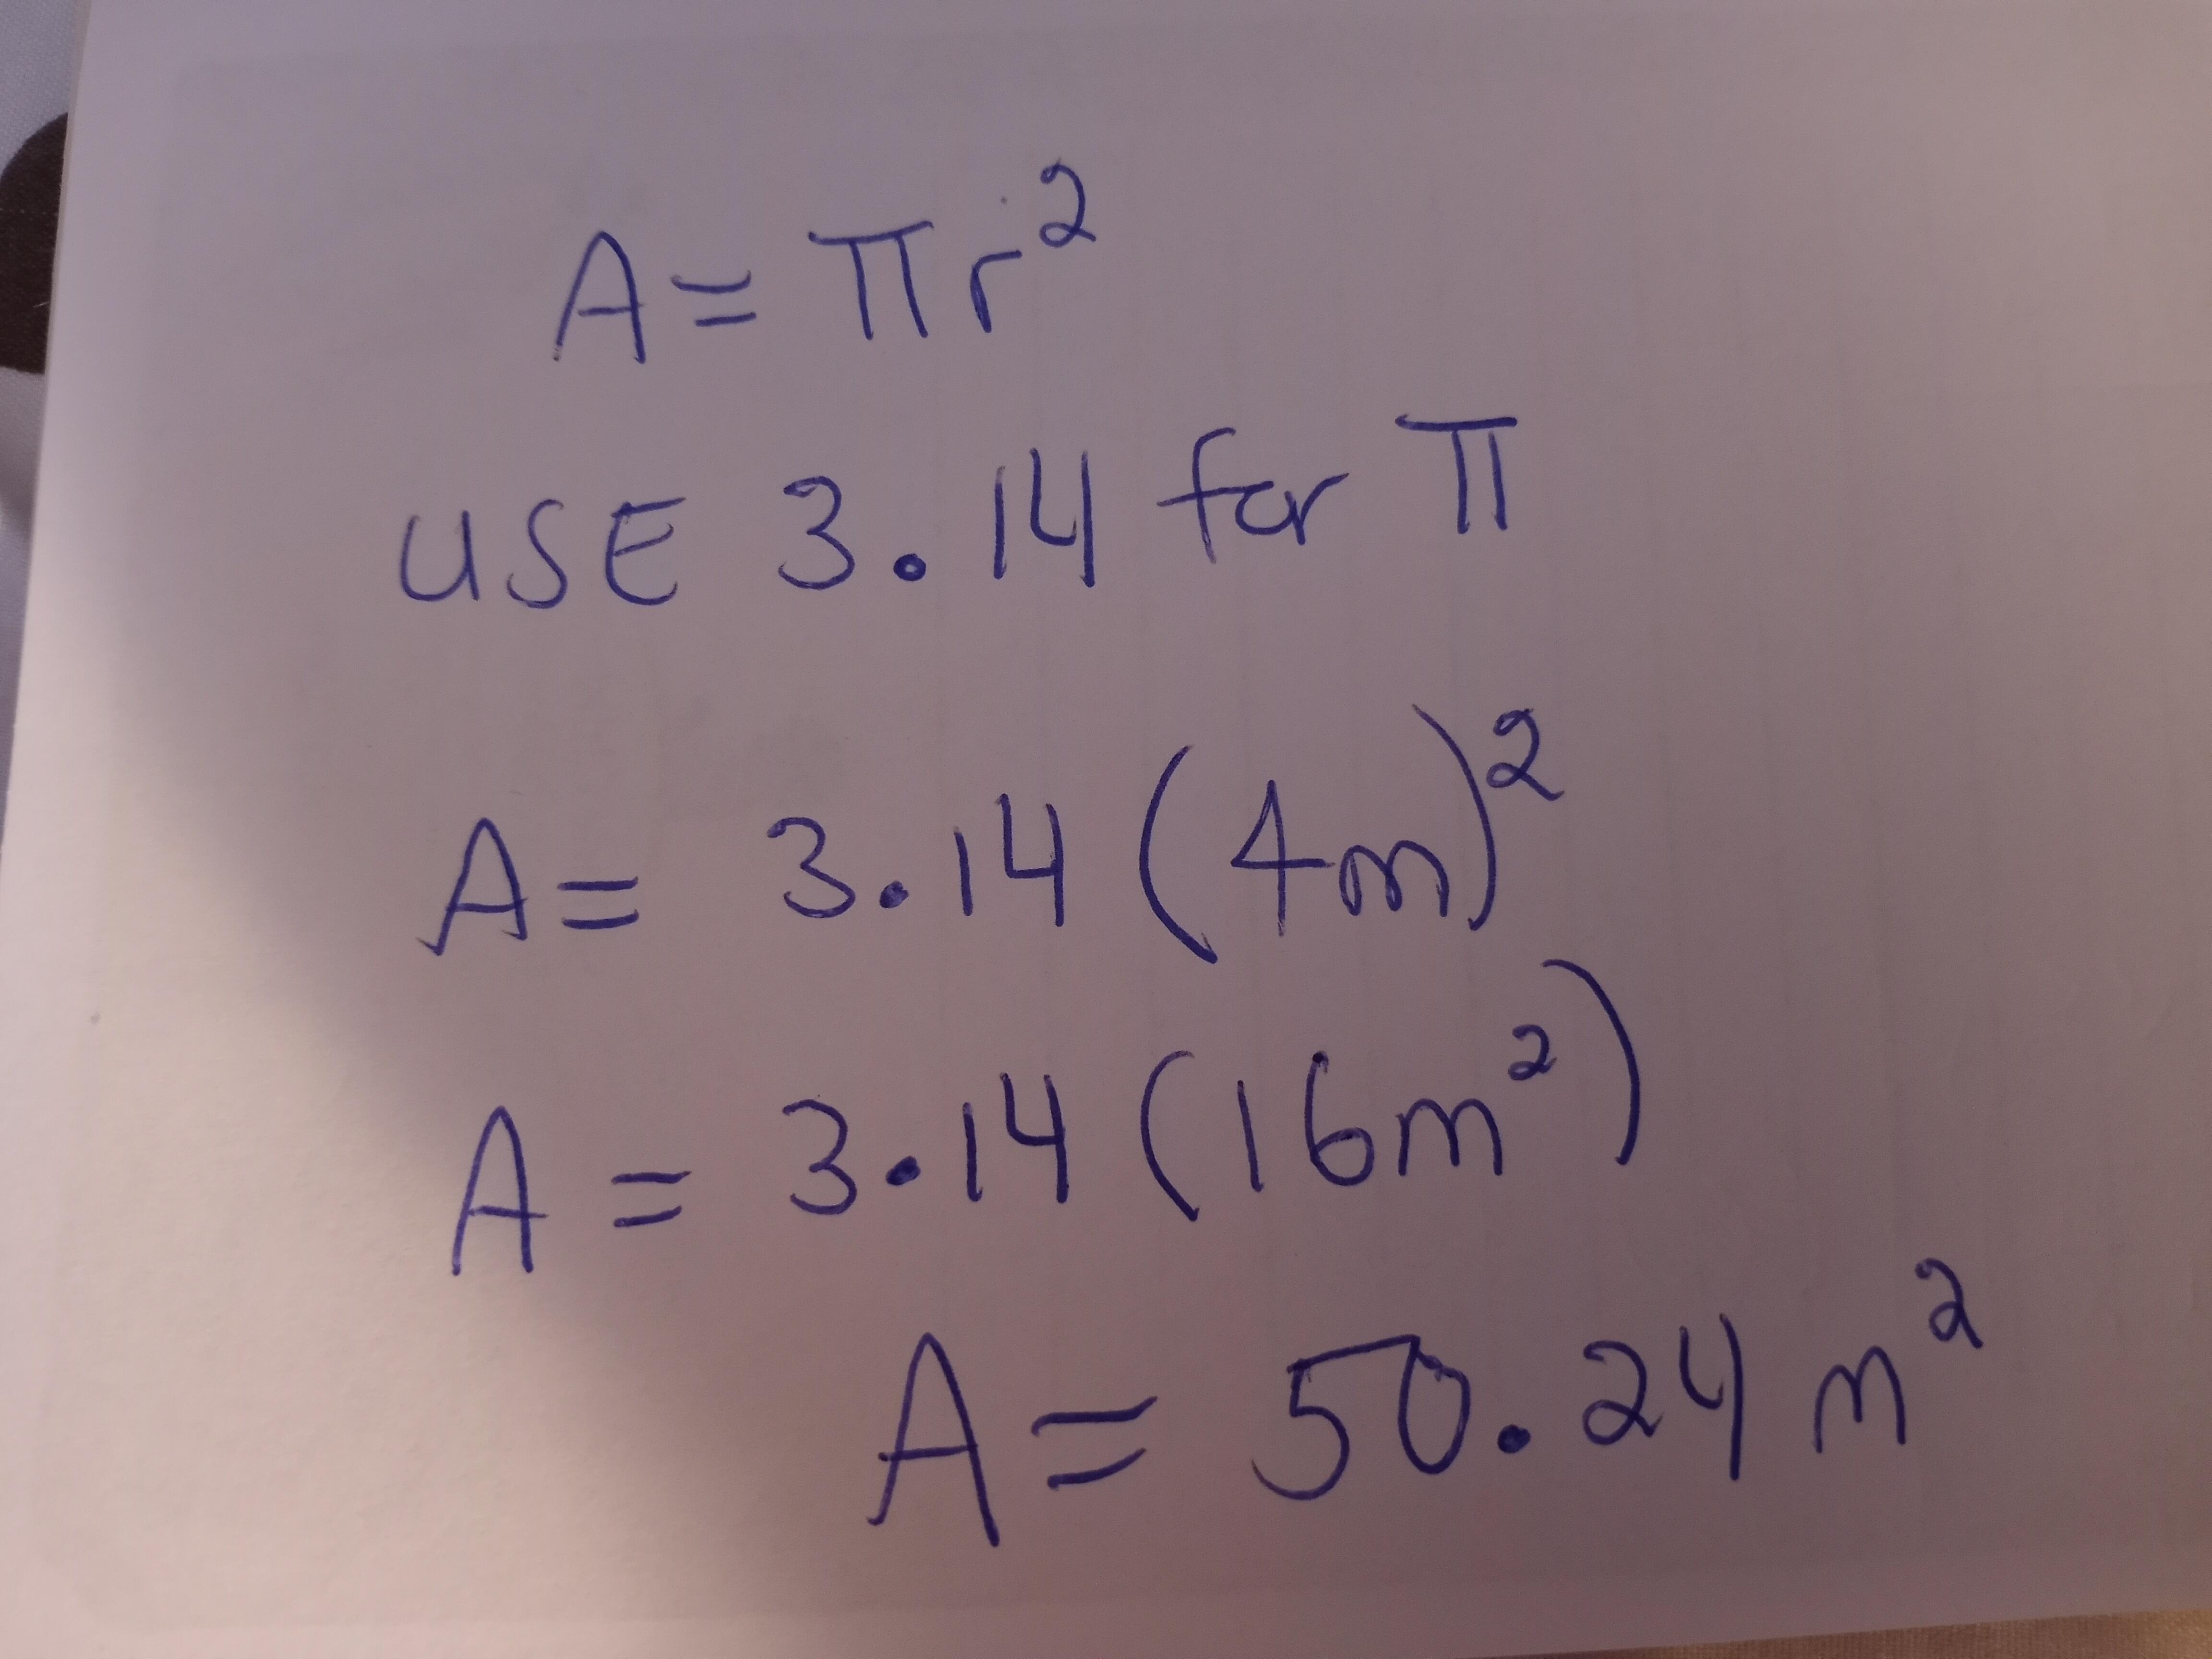 A = πr²
USE 3.14 for π
A = 3.14 (4m)²
A = 3.14 (16m²)
A = 50.24 m²